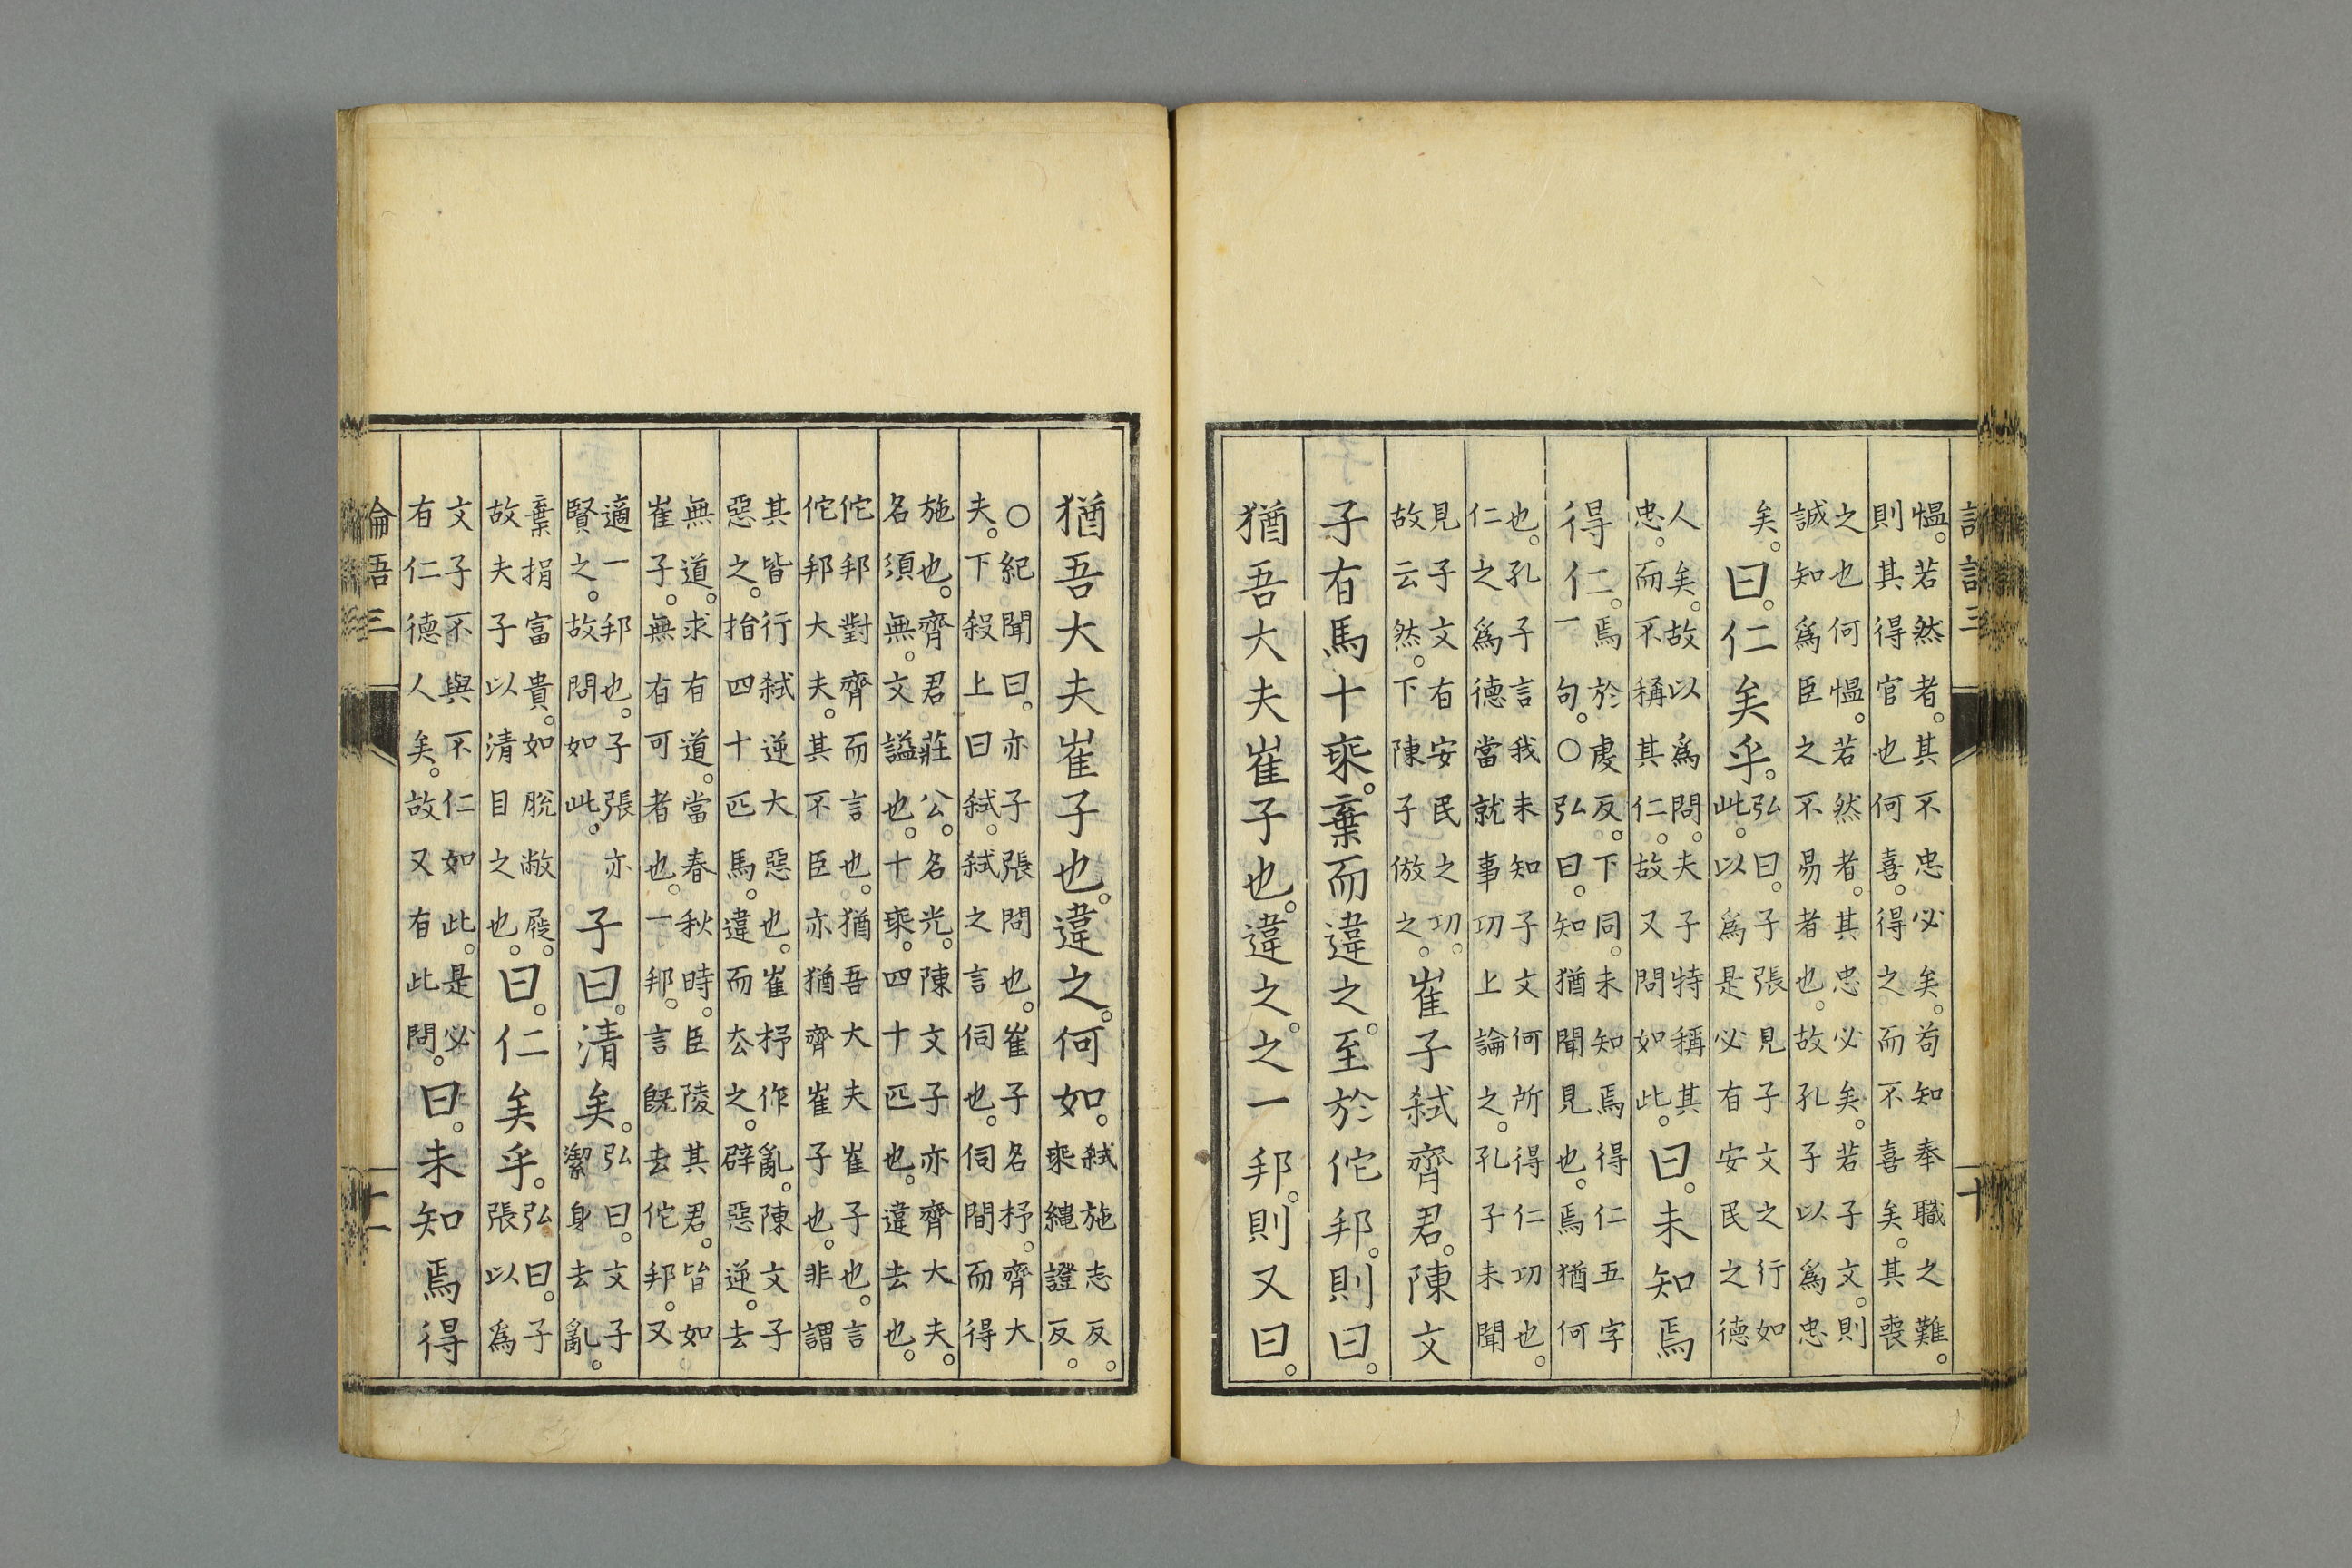 慍。若然者。其不忠必矣。苟知奉職之難。
則其得官也何喜。得之而不喜矣。其喪
之也何慍。若然者。其忠必矣。若子文。則
誠知爲臣之不易者也。故孔子以爲忠
矣。曰。仁矣乎。弘曰。子張見子文之行如
此。以爲是必有安民之德
人矣。故以爲問。夫子特稱其
忠。而不稱其仁。故又問如此。曰。未知焉
得仁。焉於虔反。下同。未知焉得仁五字
一句。○弘曰。知猶聞見也。焉猶何
也。孔子言我未知子文何所得仁功也。
仁之爲德當就事功上論之。孔子未聞
見子文有安民之功。
故云然。下陳子倣之。崔子弑齊君。陳文
子有馬十乘。棄而違之。至於佗邦。則曰。
猶吾大夫崔子也。違之。之一邦。則又曰。
猶吾大夫崔子也。違之。何如。弑施志反。
乘繩證反。
○紀聞曰。亦子張問也。崔子名杼。齊大
夫。下殺上曰弑。弑之言伺也。伺間而得
施也。齊君莊公。名光。陳文子亦齊大夫。
名須無。文謚也。十乘。四十匹也。違去也。
佗邦對齊而言也。猶吾大夫崔子也。言
佗邦大夫。其不臣亦猶齊崔子也。非謂
其皆行弑逆大惡也。崔杼作亂。陳文子
惡之。抬四十匹馬。違而去之。辟惡逆。去
無道。求有道。當春秋時。臣陵其君。皆如
崔子。無有可者也。一邦。言旣去佗邦。又
適一邦也。子張亦
賢之。故問如此。子曰。清矣。弘曰。文子
潔身去亂。
棄捐富貴。如脫敝屣。
故夫子以清目之也。曰。仁矣乎。弘曰。子
張以爲
文子不與不仁如此。是必
有仁德人矣。故又有此問。曰。未知焉得
論語三
十一